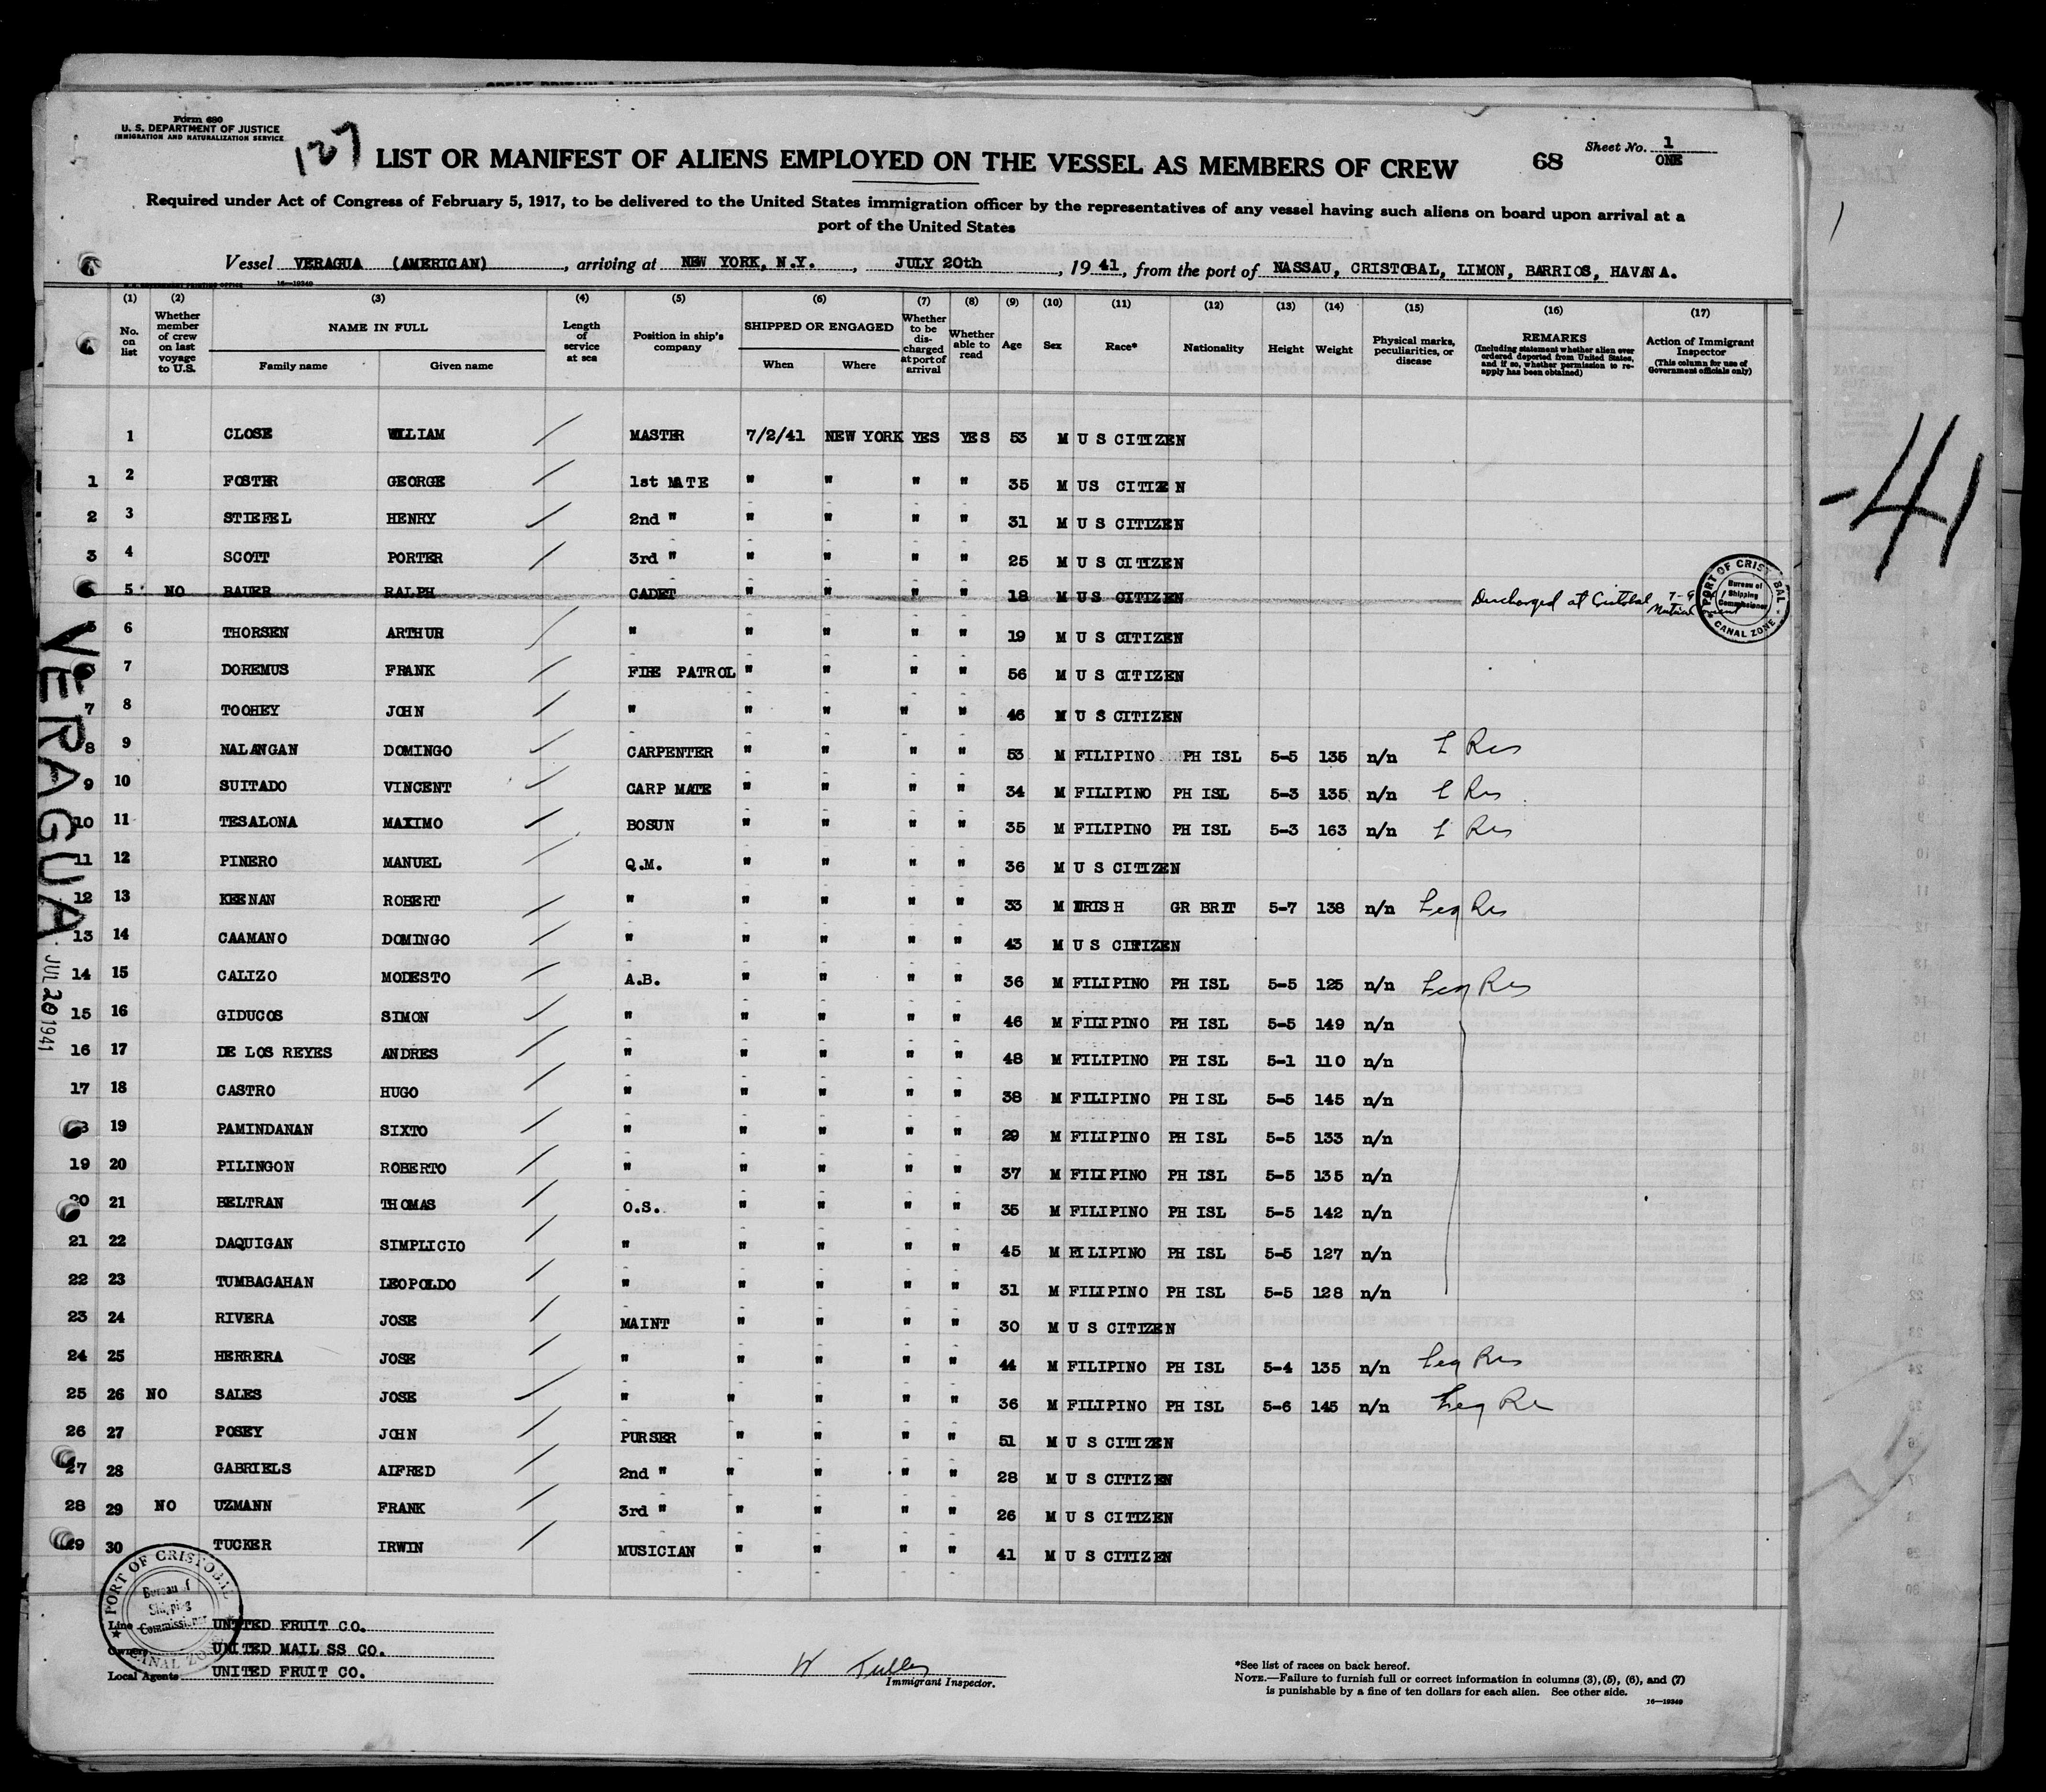 Form 680
U. S. DEPARTMENT OF JUSTICE
IMMIGRATION AND NATURALIZATION SERVICE
127
LIST OR MANIFEST OF ALIENS EMPLOYED ON THE VESSEL AS MEMBERS OF CREW
68
Sheet No. 1
ONE
Required under Act of Congress of February 5, 1917, to be delivered to the United States immigration officer by the representatives of any vessel having such aliens on board upon arrival at a
port of the United States
Vessel VERAGUA (AMERICAN), arriving at NEW YORK, N.Y., JULY 20th, 1941, from the port of NASSAU, CRISTOBAL, LIMON, BARRIOS, HAVANA.
16—19349
(1) (2) (3) (4) (5) (6) (7) (8) (9) (10) (11) (12) (13) (14) (15) (16) (17)
No. on list
Whether member of crew on last voyage to U.S.
NAME IN FULL
Family name Given name
Length of service at sea
Position in ship's company
SHIPPED OR ENGAGED
When Where
Whether to be discharged at port of arrival
Whether able to read
Age Sex Race* Nationality Height Weight
Physical marks, peculiarities, or disease
REMARKS
(Including statement whether alien ever ordered deported from United States, and if so, whether permission to reapply has been obtained)
Action of Immigrant Inspector
(This column for use of Government officials only)
1 CLOSE WILLIAM / MASTER 7/2/41 NEW YORK YES YES 53 M U S CITIZEN
1 2 FOSTER GEORGE / 1st MATE " " " " 35 M US CITIZEN
2 3 STIEFEL HENRY / 2nd " " " " " 31 M U S CITIZEN
3 4 SCOTT PORTER / 3rd " " " " " 25 M U S CITIZEN
5 NO BAUER RALPH CADET " " " " 18 M US CITIZEN Discharged at Cristobal 7-9
5 6 THORSEN ARTHUR / " " " " " 19 M U S CITIZEN
7 DOREMUS FRANK / FIRE PATROL " " " " 56 M U S CITIZEN
7 8 TOOHEY JOHN / " " " " " 46 M U S CITIZEN
8 9 NALANGAN DOMINGO / CARPENTER " " " " 53 M FILIPINO PH ISL 5-5 135 n/n L Res
9 10 SUITADO VINCENT / CARP MATE " " " " 34 M FILIPINO PH ISL 5-3 135 n/n L Res
10 11 TESALONA MAXIMO / BOSUN " " " " 35 M FILIPINO PH ISL 5-3 163 n/n L Res
11 12 PINERO MANUEL / Q.M. " " " " 36 M U S CITIZEN
12 13 KEENAN ROBERT / " " " " " 33 M IRISH GR BRIT 5-7 138 n/n Leg Res
13 14 CAAMANO DOMINGO / " " " " " 43 M U S CITIZEN
14 15 CALIZO MODESTO / A.B. " " " " 36 M FILIPINO PH ISL 5-5 125 n/n Leg Res
15 16 GIDUCOS SIMON / " " " " " 46 M FILIPINO PH ISL 5-5 149 n/n
16 17 DE LOS REYES ANDRES / " " " " " 48 M FILIPINO PH ISL 5-1 110 n/n
17 18 CASTRO HUGO / " " " " " 38 M FILIPINO PH ISL 5-5 145 n/n
19 PAMINDANAN SIXTO / " " " " " 29 M FILIPINO PH ISL 5-5 133 n/n
19 20 PILINGON ROBERTO / " " " " " 37 M FILIPINO PH ISL 5-5 135 n/n
20 21 BELTRAN THOMAS / O.S. " " " " 35 M FILIPINO PH ISL 5-5 142 n/n
21 22 DAQUIGAN SIMPLICIO / " " " " " 45 M FILIPINO PH ISL 5-5 127 n/n
22 23 TUMBAGAHAN LEOPOLDO / " " " " " 31 M FILIPINO PH ISL 5-5 128 n/n
23 24 RIVERA JOSE / MAINT " " " " 30 M U S CITIZEN
24 25 HERRERA JOSE / " " " " " 44 M FILIPINO PH ISL 5-4 135 n/n Leg Res
25 26 NO SALES JOSE / " " " " " 36 M FILIPINO PH ISL 5-6 145 n/n Leg Re
26 27 POSEY JOHN / PURSER " " " " 51 M U S CITIZEN
27 28 GABRIELS ALFRED / 2nd " " " " " 28 M U S CITIZEN
28 29 NO UZMANN FRANK / 3rd " " " " " 26 M U S CITIZEN
29 30 TUCKER IRWIN / MUSICIAN " " " " 41 M U S CITIZEN
PORT OF CRISTOBAL
Bureau of Shipping Commissioner
CANAL ZONE
VERAGUA
JUL 20 1941
-41
PORT OF CRISTOBAL
Bureau of Shipping Commissioner
CANAL ZONE
Line UNITED FRUIT CO.
Owners UNITED MAIL SS CO.
Local Agents UNITED FRUIT CO.
Immigrant Inspector.
*See list of races on back hereof.
NOTE.—Failure to furnish full or correct information in columns (3), (5), (6), and (7)
is punishable by a fine of ten dollars for each alien. See other side.
16—19349